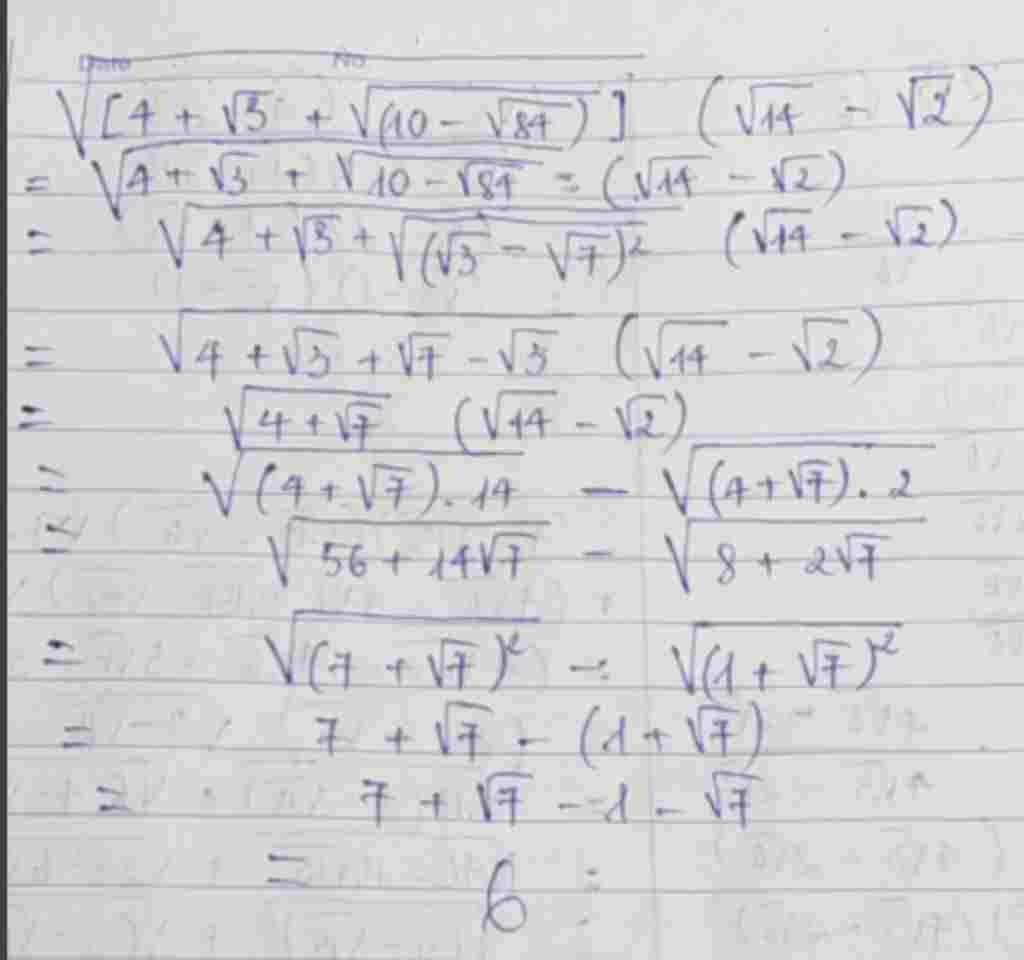 Date No
√[4 + √3 + √(10 - √84)] (√14 - √2)
= √4 + √3 + √10 - √84 = (√14 - √2)
= √4 + √3 + √(√3 - √7)² (√14 - √2)
= √4 + √3 + √7 - √3 (√14 - √2)
= √4 + √7 (√14 - √2)
= √(4 + √7).14 - √(4 + √7).2
= √56 + 14√7 - √8 + 2√7
= √(7 + √7)² - √(1 + √7)²
= 7 + √7 - (1 + √7)
= 7 + √7 - 1 - √7
= 6